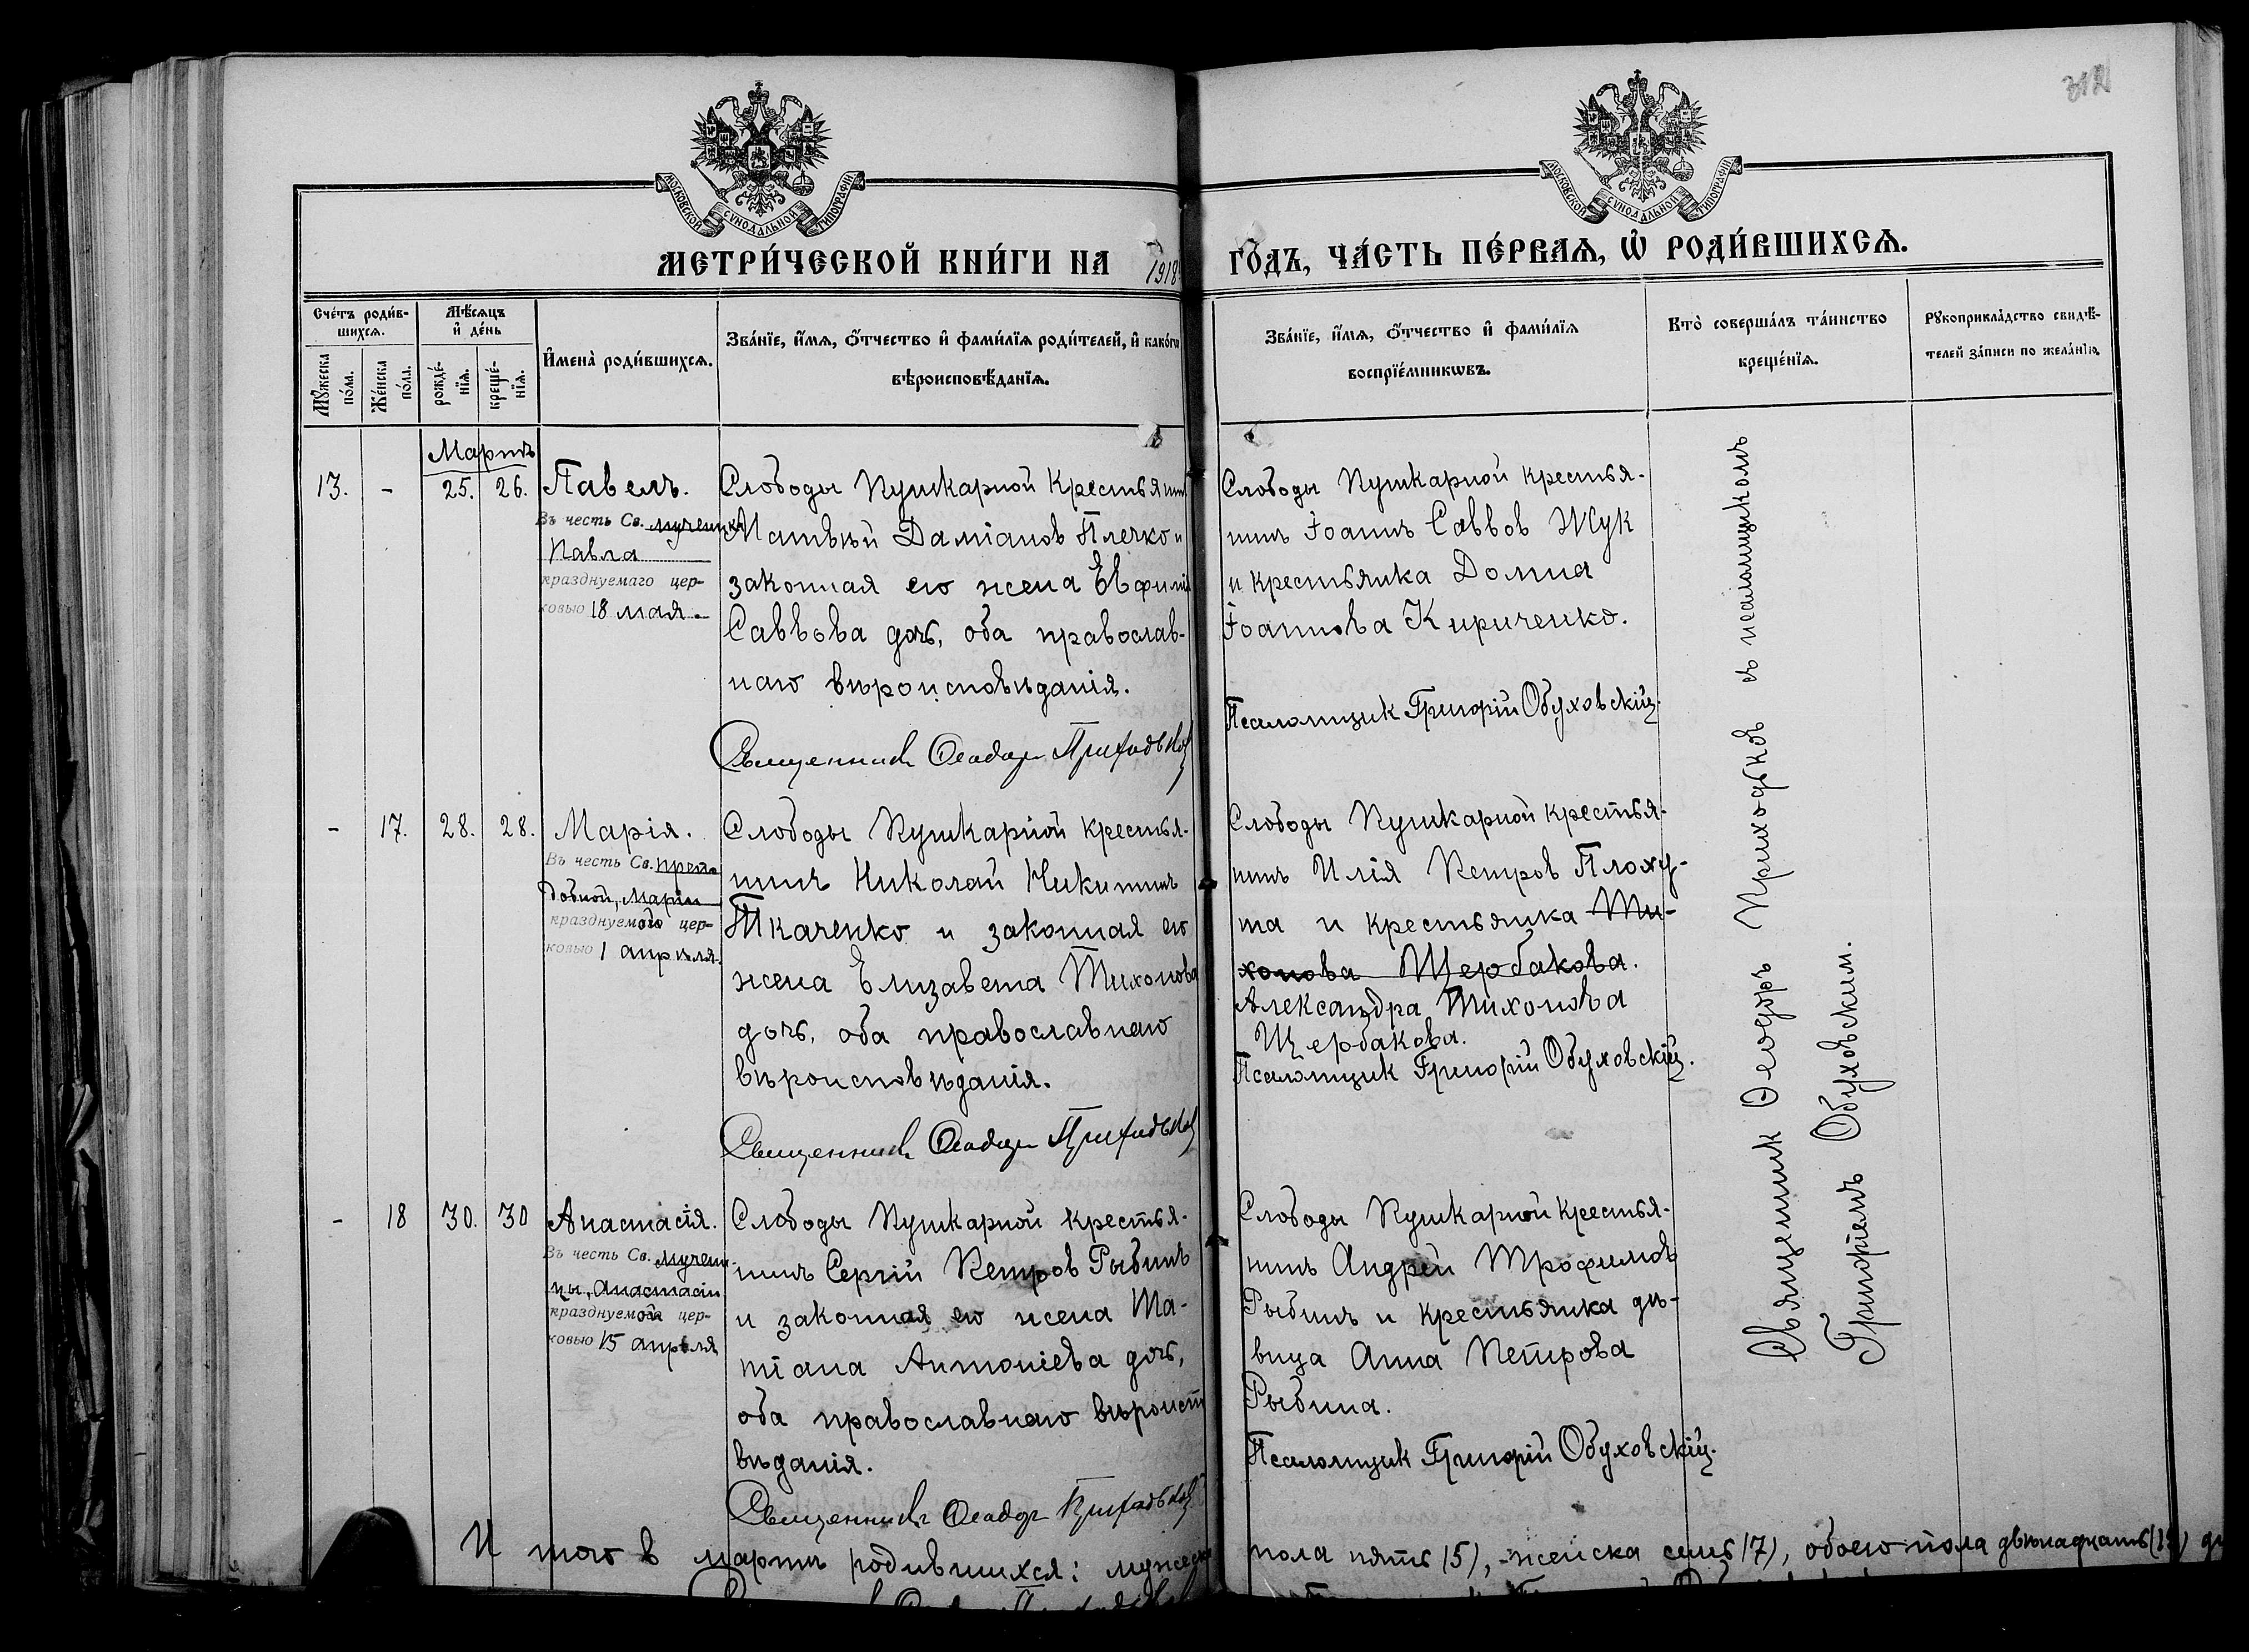 312
МОСКОВСКОЙ СѴНОДАЛЬНОЙ ТИПОГРАФІИ
МОСКОВСКОЙ СѴНОДАЛЬНОЙ ТИПОГРАФІИ
МЕТРИ́ЧЕСКОЙ КНИ́ГИ НА 1918 ГО́ДЪ, ЧА́СТЬ ПЕ́РВАѦ, Ѡ҆ РОДИ́ВШИХСѦ.
Сче́тъ роди́в-
шихсѧ.
Мꙋ́жеска
по́ла.
Же́нска
по́ла.
Мѣ́сѧцъ
и҆ де́нь
рожде́-
нїѧ.
креще́-
нїѧ.
И҆мена̀ роди́вшихсѧ.
Зва́нїе, и҆́мѧ, ѻ҆́тчество и҆ фами́лїѧ роди́телей, и҆ како́гѡ
вѣроисповѣ́данїѧ.
Зва́нїе, и҆́мѧ, ѻ҆́тчество и҆ фами́лїѧ
воспрїе́мникѡвъ.
Кто̀ соверша́лъ та́инство
креще́нїѧ.
Рꙋкоприкла́дство свидѣ́-
телей за́писи по жела́нїю.
Мартъ
13. - 25. 26. Павелъ.
Въ честь Св. мученика
Павла
празднуемаго цер-
ковью 18 мая.
Слободы Пушкарной Крестьянин
Матвѣй Даміановъ Плечко и
законная его жена Евфимія
Саввова дочь, оба православ-
наго вѣроисповѣданія.
Священникъ Ѳеодоръ Приходьков
Слободы Пушкарной крестья-
нинъ Іоаннъ Саввов Жук
и крестьянка Домна
Іоаннова Кириченко.
Псаломщик Григорій Обуховскій.
- 17. 28. 28. Марія.
Въ честь Св. препо
добной, Маріи
празднуемой цер-
ковью 1 апрѣля.
Слободы Пушкарной крестья-
нинъ Николай Никитинъ
Ткаченко и законная его
жена Елизавета Тихонова
дочь, оба православнаго
вѣроисповѣданія.
Священникъ Ѳеодоръ Приходьков
Слободы Пушкарной крестья-
нинъ Илія Петров Плоху-
та и крестьянка Ти-
хонова Щербакова.
Александра Тихонова
Щербакова.
Псаломщик Григорій Обуховскій.
- 18 30. 30 Анастасія.
Въ честь Св. мучени-
цы, Анастасіи
празднуемой цер-
ковью 15 апрѣля
Слободы Пушкарной крестья-
нинъ Сергій Петров Рыбинъ
и законная его жена Та-
тіана Антоніева дочь,
оба православнаго вѣроисп
вѣданія.
Священникъ Ѳеодоръ Приходьков
Слободы Пушкарной крестья-
нинъ Андрей Трофимовъ
Рыбинъ и крестьянка дѣ-
вица Анна Петрова
Рыбина.
Псаломщик Григорій Обуховскій.
Священник Ѳеодоръ Приходьков съ псаломщикомъ
Григоріемъ Обуховским.
И того в мартѣ родившихся: мужеска пола пять (5), женска семь (7), обоего пола двѣнадцать (12)